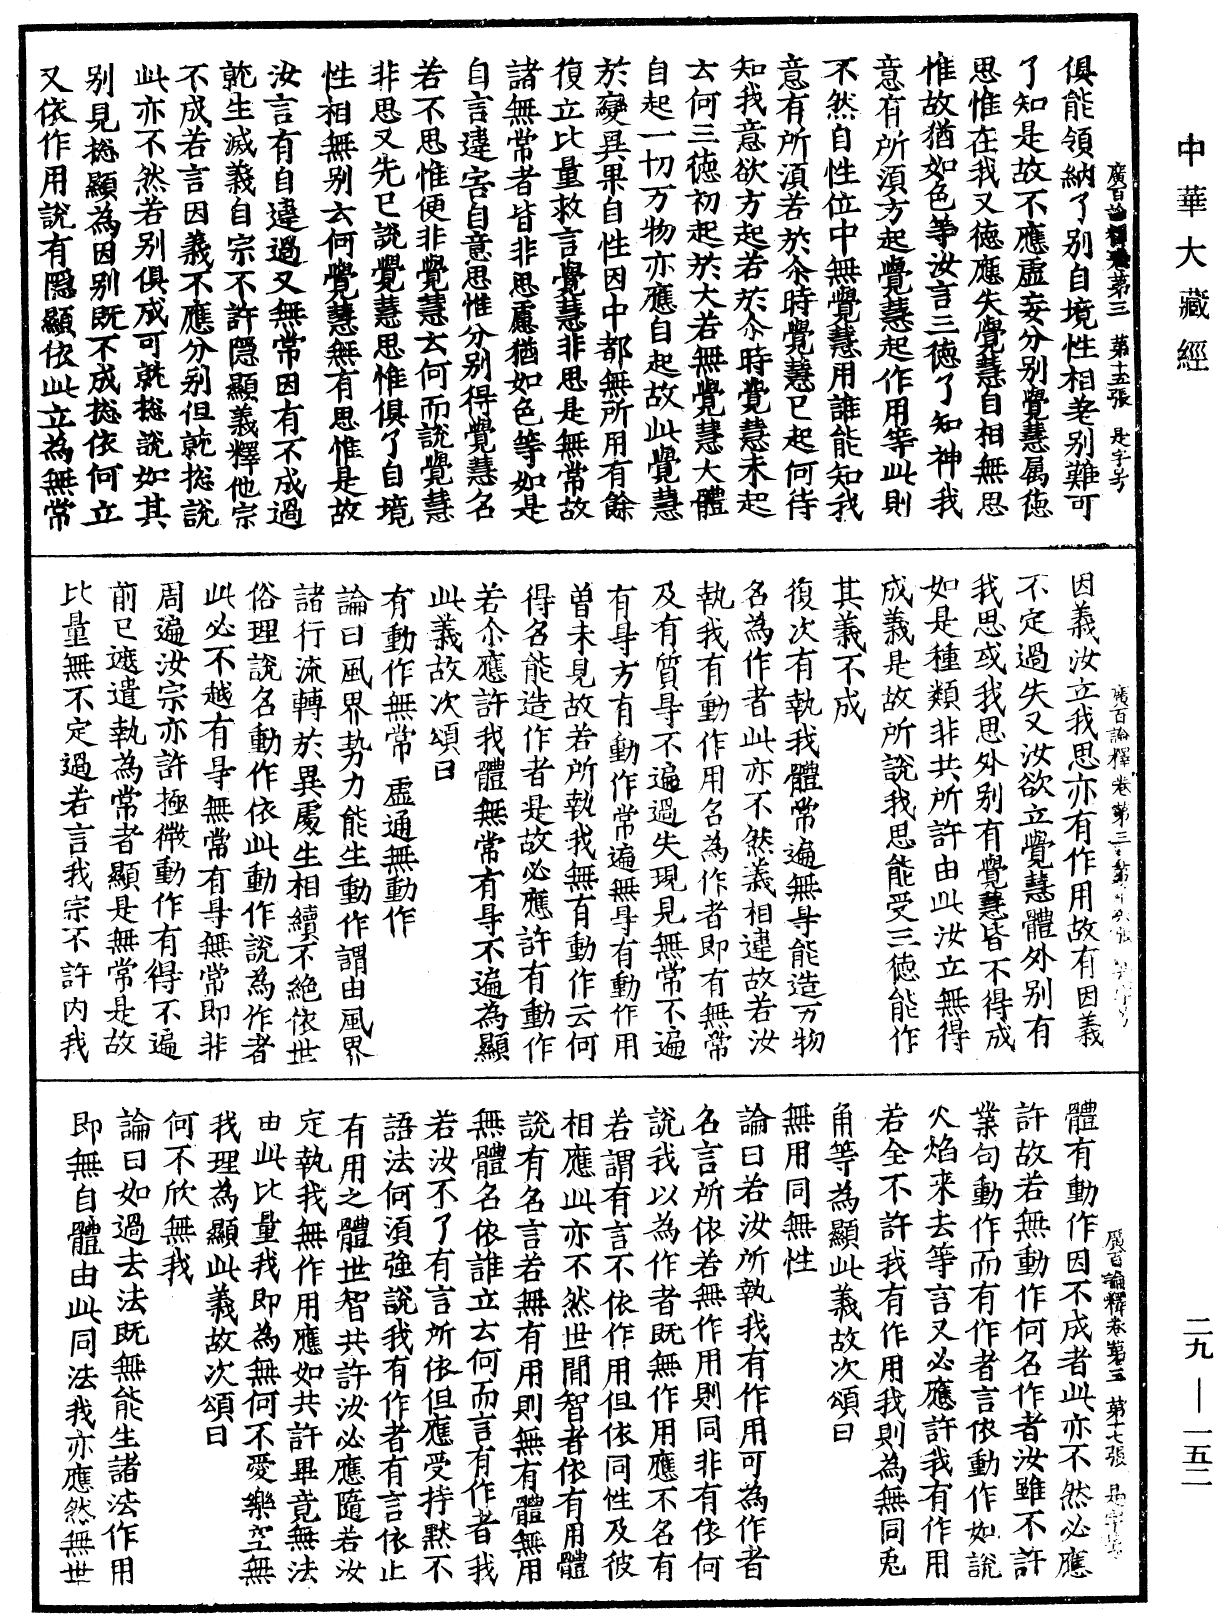 中華大藏經
廣百論釋卷第三　第十五張　是字号
俱能領納了別自境性相差別難可
了知是故不應虛妄分別覺慧属德
思惟在我又德應失覺慧自相無思
惟故猶如色等汝言三德了知神我
意有所須方起覺慧起作用等此則
不然自性位中無覺慧用誰能知我
意有所須若於尒時覺慧已起何待
知我意欲方起若於尒時覺慧未起
云何三德初起於大若無覺慧大體
自起一切万物亦應自起故此覺慧
於變異果自性因中都無所用有餘
復立比量救言覺慧非思是無常故
諸無常者皆非思慮猶如色等如是
自言違害自意思惟分別得覺慧名
若不思惟便非覺慧云何而說覺慧
非思又先已說覺慧思惟俱了自境
性相無別云何覺慧無有思惟是故
汝言有自違過又無常因有不成過
就生滅義自宗不許隱顯義釋他宗
不成若言因義不應分別但就揔說
此亦不然若別俱成可就揔說如其
別見揔顯為因別既不成揔依何立
又依作用說有隱顯依此立為無常
廣百論釋卷第三　第十六張　是字号
因義汝立我思亦有作用故有因義
不定過失又汝欲立覺慧體外別有
我思或我思外別有覺慧皆不得成
如是種類非共所許由此汝立無得
成義是故所說我思能受三德能作
其義不成
復次有執我體常遍無㝵能造万物
名為作者此亦不然義相違故若汝
執我有動作用名為作者即有無常
及有質㝵不遍過失現見無常不遍
有㝵方有動作常遍無㝵有動作用
曾未見故若所執我無有動作云何
得名能造作者是故必應許有動作
若尒應許我體無常有㝵不遍為顯
此義故次頌曰
有動作無常　虛通無動作
論曰風界勢力能生動作謂由風界
諸行流轉於異處生相續不絕依世
俗理說名動作依此動作說為作者
此必不越有㝵無常有㝵無常即非
周遍汝宗亦許極微動作有得不遍
前已遮遣執為常者顯是無常是故
比量無不定過若言我宗不許內我
廣百論釋卷第三　第十七張　是字号
體有動作因不成者此亦不然必應
許故若無動作何名作者汝雖不許
業句動作而有作者言依動作如說
火焰来去等言又必應許我有作用
若全不許我有作用我則為無同兎
角等為顯此義故次頌曰
無用同無性
論曰若汝所執我有作用可為作者
名言所依若無作用則同非有依何
說我以為作者既無作用應不名有
若謂有言不依作用但依同性及彼
相應此亦不然世間智者依有用體
說有名言若無有用則無有體無用
無體名依誰立云何而言有作者我
若汝不了有言所依但應受持默不
語法何須強說我有作者有言依止
有用之體世智共許汝必應隨若汝
定執我無作用應如共許畢竟無法
由此比量我即為無何不愛樂空無
我理為顯此義故次頌曰
何不欣無我
論曰如過去法既無能生諸法作用
即無自體由此同法我亦應然無世
二九—一五二